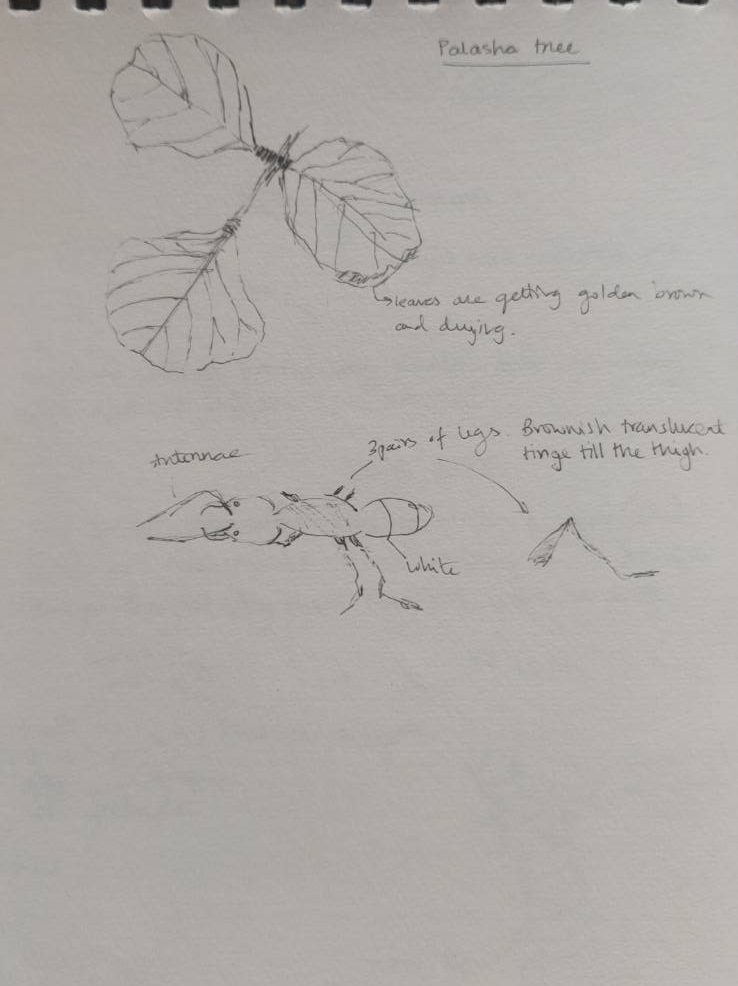 Palasha tree
leaves are getting golden brown
and drying.
Antennae
3 pairs of legs. Brownish translucent
tinge till the thigh.
White